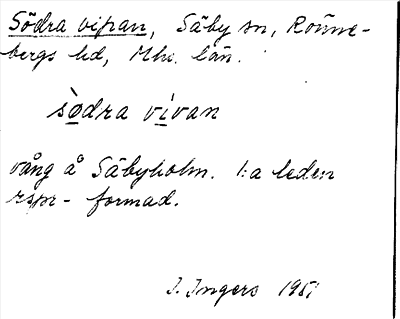 Södra vipan, Säby sn, Rönne-
bergs hd, Mhs. län.
sò̲dra vi̲van
vång å Säbyholm. 1:a leden
rspr - formad.
I. Ingers 195